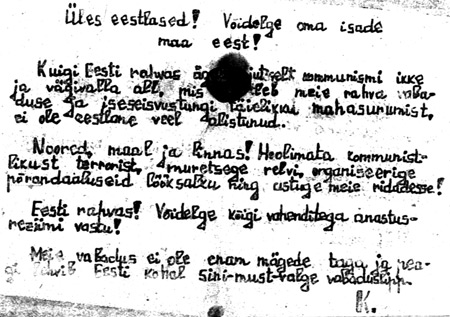 Üles eestlased! Võidelge oma isade
maa eest!
Kuigi Eesti rahvas kommunismi ikke
ja vägivalla all, mis meie rahva vaba-
duse ja iseseisvustungi täielikku mahasurumist,
ei ole eestlane veel alistunud.
Noored, maal ja linnas! Hoolimata kommunist-
likust terrorist, muretsege relvi, organiseerige
põrandaaluseid löök salku ning astuge meie ridadesse!
Eesti rahvas! Võidelge kõigi vahenditega anastus-
reziimi vastu!
Meie vabadus ei ole enam mägede taga ja pea-
gi Eesti kohal sini-must-valge vabaduslipp.
K.